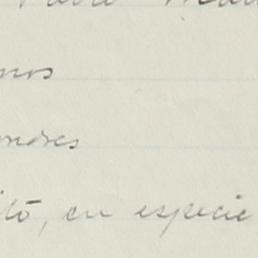 nos
ondres
ito, en especie